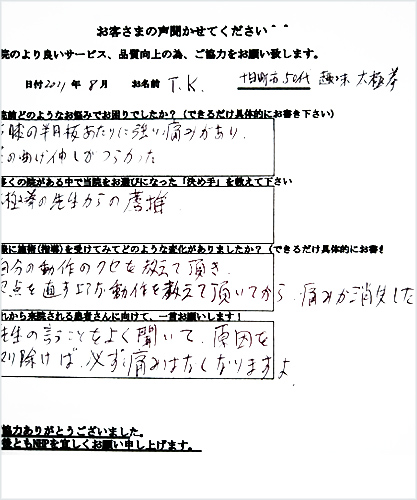 お客さまの声聞かせてください＾＾
院のより良いサービス、品質向上の為、ご協力をお願い致します。
日付2011年8月 お名前 T.K. 十日町市50代 趣味 太極拳
院前どのようなお悩みでお困りでしたか？（できるだけ具体的にお書き下さい）
膝の半月板あたりに強い痛みがあり、
の曲げ伸しがつらかった
多くの院がある中で当院をお選びになった「決め手」を教えて下さい
極拳の先生からの薦推
際に施術(指導)を受けてみてどのような変化がありましたか？（できるだけ具体的にお書き
自分の動作のクセを教えて頂き、
点を直すような動作を教えて頂いてから、痛みが消失した
れから来院される患者さんに向けて、一言お願いします！
先生の言うことをよく聞いて、原因を
り除けば、必ず痛みはなくなりますよ
協力ありがとうございました。
後ともNEPを宜しくお願い申し上げます。